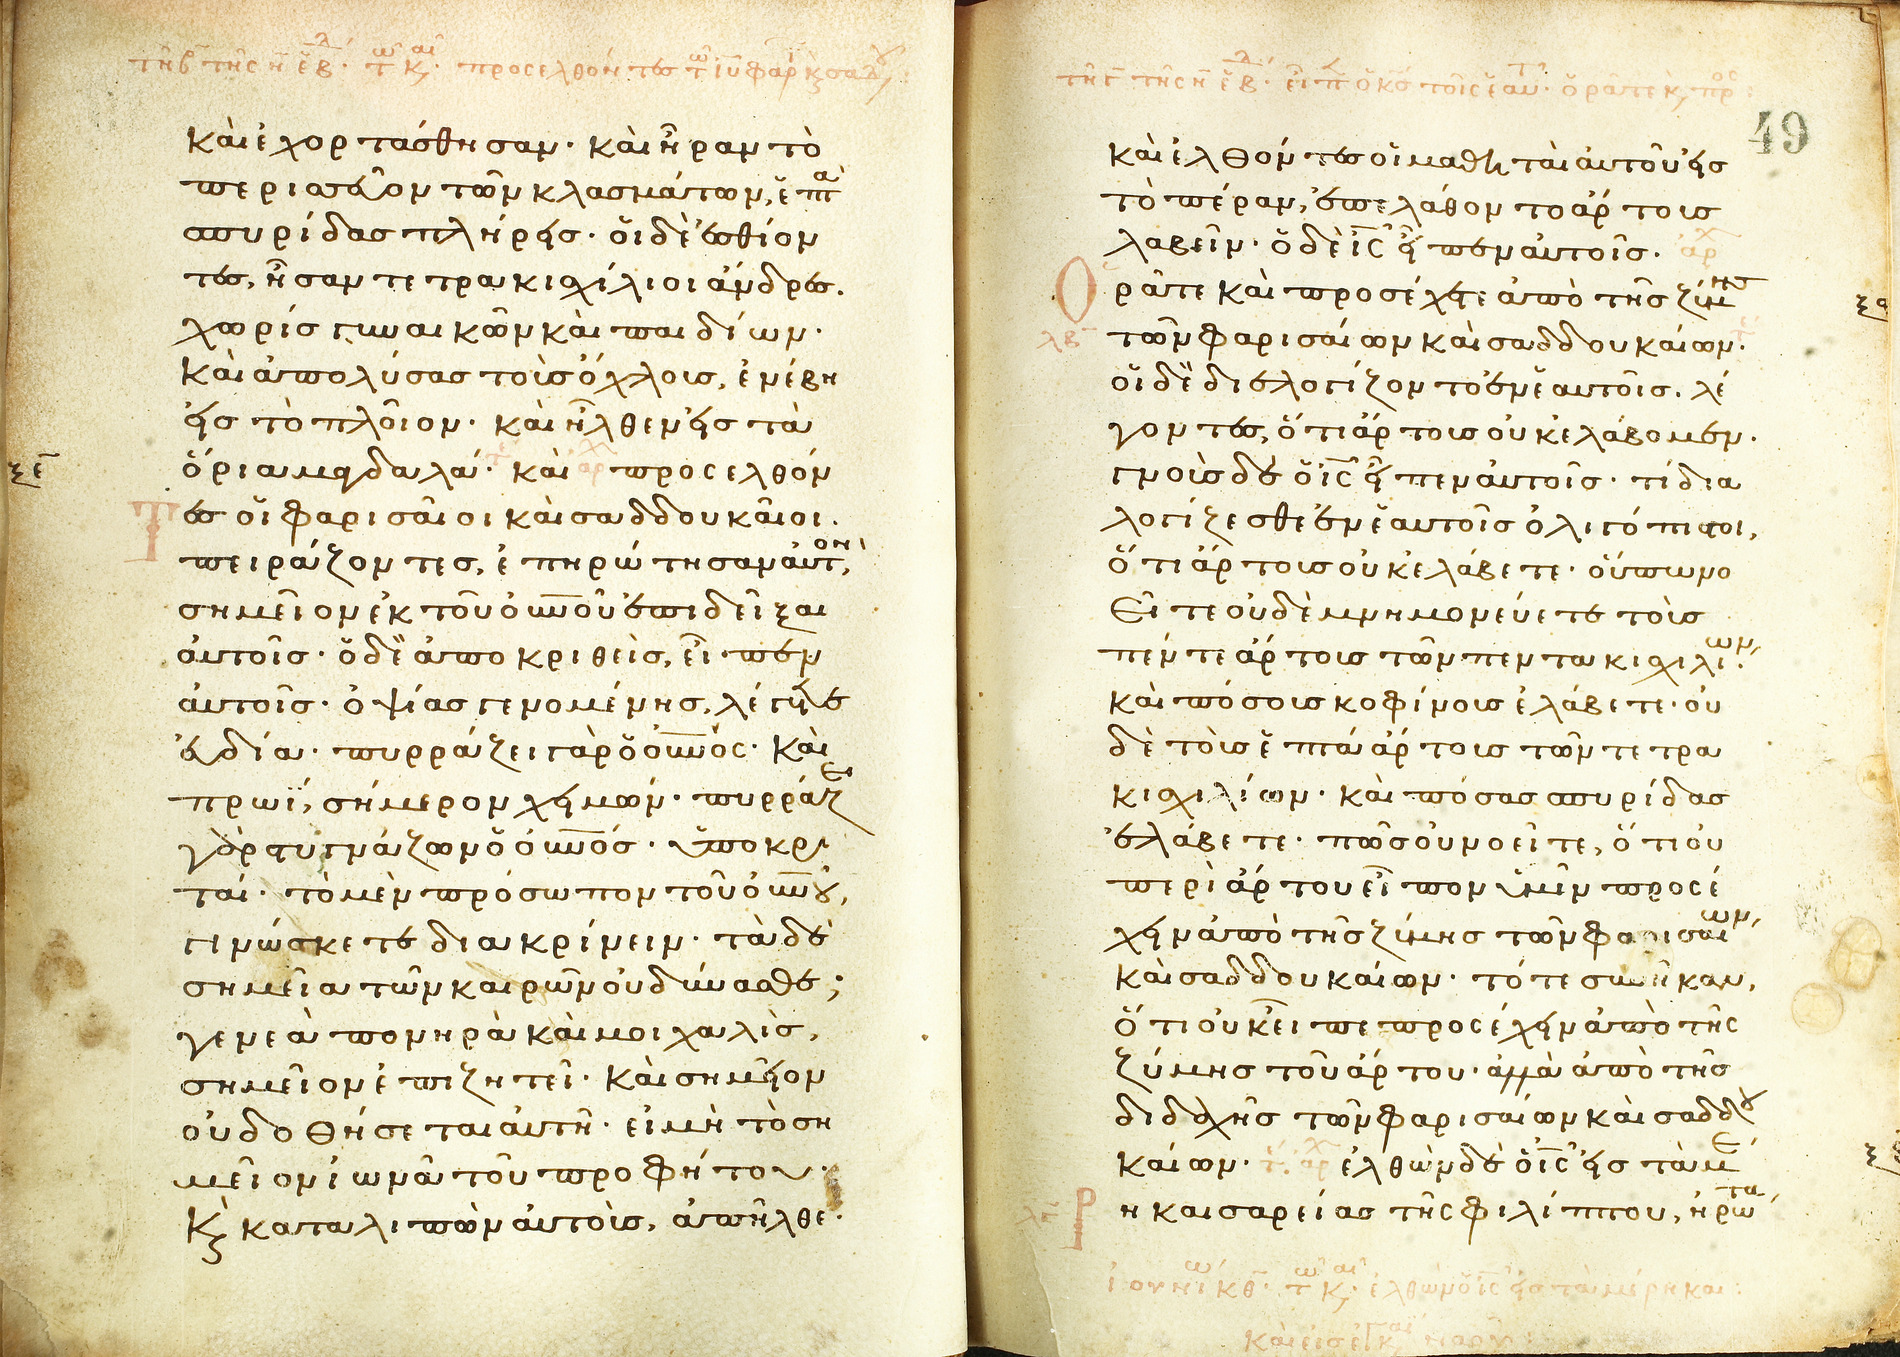 καὶ ἐχορτάσθησαν· καὶ ἦραν τὸ
περισσεῦον τῶν κλασμάτων, ἑπτὰ
σπυρίδας πλήρεις· οἱ δὲ ἐσθίον
τες, ἦσαν τετρακισχίλιοι ἄνδρες.
χωρὶς γυναικῶν καὶ παιδίων·
καὶ ἀπολύσας τοὺς ὄχλους, ἐνέβη
εἰς τὸ πλοῖον· καὶ ἦλθεν εἰς τὰ
ξε
ὅρια μαγδαλά· καὶ προσελθόν
τες οἱ φαρισαῖοι καὶ σαδδουκαῖοι.
πειράζοντες, ἐπηρώτησαν αὐτὸν,
σημεῖον ἐκ τοῦ οὐνοῦ ἐπιδεῖξαι
αὐτοῖς· ὁ δὲ ἀποκριθεὶς, εἶπεν
αὐτοῖς· ὀψίας γενομένης, λέγετε
εὐδία· πυρράζει γὰρ ὁ οὐνός· καὶ
πρωῒ, σήμερον χειμών· πυρράζει
γὰρ στυγνάζων ὁ οὐνός· ὑποκρι
ταί· τὸ μὲν πρόσωπον τοῦ οὐνοῦ,
γινώσκετε διακρίνειν· τὰ δὲ
σημεῖα τῶν καιρῶν οὐ δύνασθε;
γενεὰ πονηρὰ καὶ μοιχαλὶς,
σημεῖον ἐπιζητεῖ· καὶ σημεῖον
οὐ δοθήσεται αὐτῇ· εἰ μὴ τὸ ση
μεῖον ἰωνᾶ τοῦ προφήτου·
κ καταλιπὼν αὐτοὺς, ἀπῆλθε·
49
καὶ ἐλθόντες οἱ μαθηταὶ αὐτοῦ εἰς
τὸ πέραν, ἐπελάθοντο ἄρτους
λαβεῖν· ὁ δὲ ἰς εἶπεν αὐτοῖς·
Ὁρᾶτε καὶ προσέχετε ἀπὸ τῆς ζύμης
λβ
τῶν φαρισαίων καὶ σαδδουκαίων·
οἱ δὲ διελογίζοντο ἐν ἑαυτοῖς. λέ
γοντες, ὅτι ἄρτους οὐκ ἐλάβομεν·
γνοὺς δὲ ὁ ἰς εἶπεν αὐτοῖς· τί δια
λογίζεσθε ἐν ἑαυτοῖς ὀλιγόπιστοι,
ὅτι ἄρτους οὐκ ἐλάβετε· οὔπω νο
εῖτε οὐδὲ μνημονεύετε τοὺς
πέντε ἄρτους τῶν πεντακισχιλίων,
καὶ πόσους κοφίνους ἐλάβετε· οὐ
δὲ τοὺς ἑπτὰ ἄρτους τῶν τετρα
κισχιλίων· καὶ πόσας σπυρίδας
ἐλάβετε· πῶς οὐ νοεῖτε, ὅτι οὐ
περὶ ἄρτου εἶπον ὑμῖν προσέ
χειν ἀπὸ τῆς ζύμης τῶν φαρισαίων,
καὶ σαδδουκαίων· τότε συνῆκαν,
ὅτι οὐκ εἶπε προσέχειν ἀπὸ τῆς
ζύμης τοῦ ἄρτου· ἀλλὰ ἀπὸ τῆς
διδαχῆς τῶν φαρισαίων καὶ σαδδου
καίων· ἐλθὼν δὲ ὁ ἰς εἰς τὰ μέ
ρη καισαρείας τῆς φιλίππου, ἠρώτα